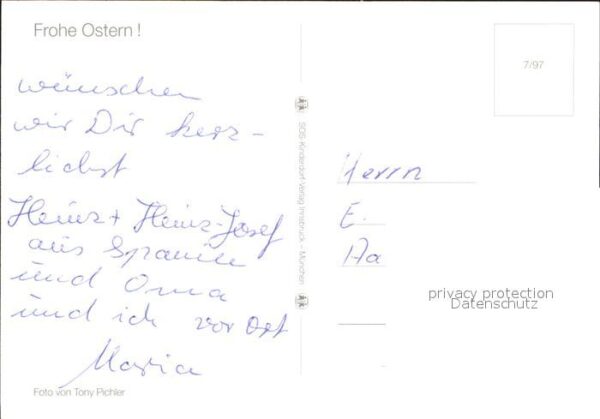 Frohe Ostern !
wünschen
wir Dir herz-
lichst
Heinz + Heinz-Josef
aus Spanien
und Oma
und ich vor Ort
Maria
Foto von Tony Pichler
SOS-Kinderdorf-Verlag Innsbruck - München
7/97
Herrn
E.
Aa
privacy protection
Datenschutz